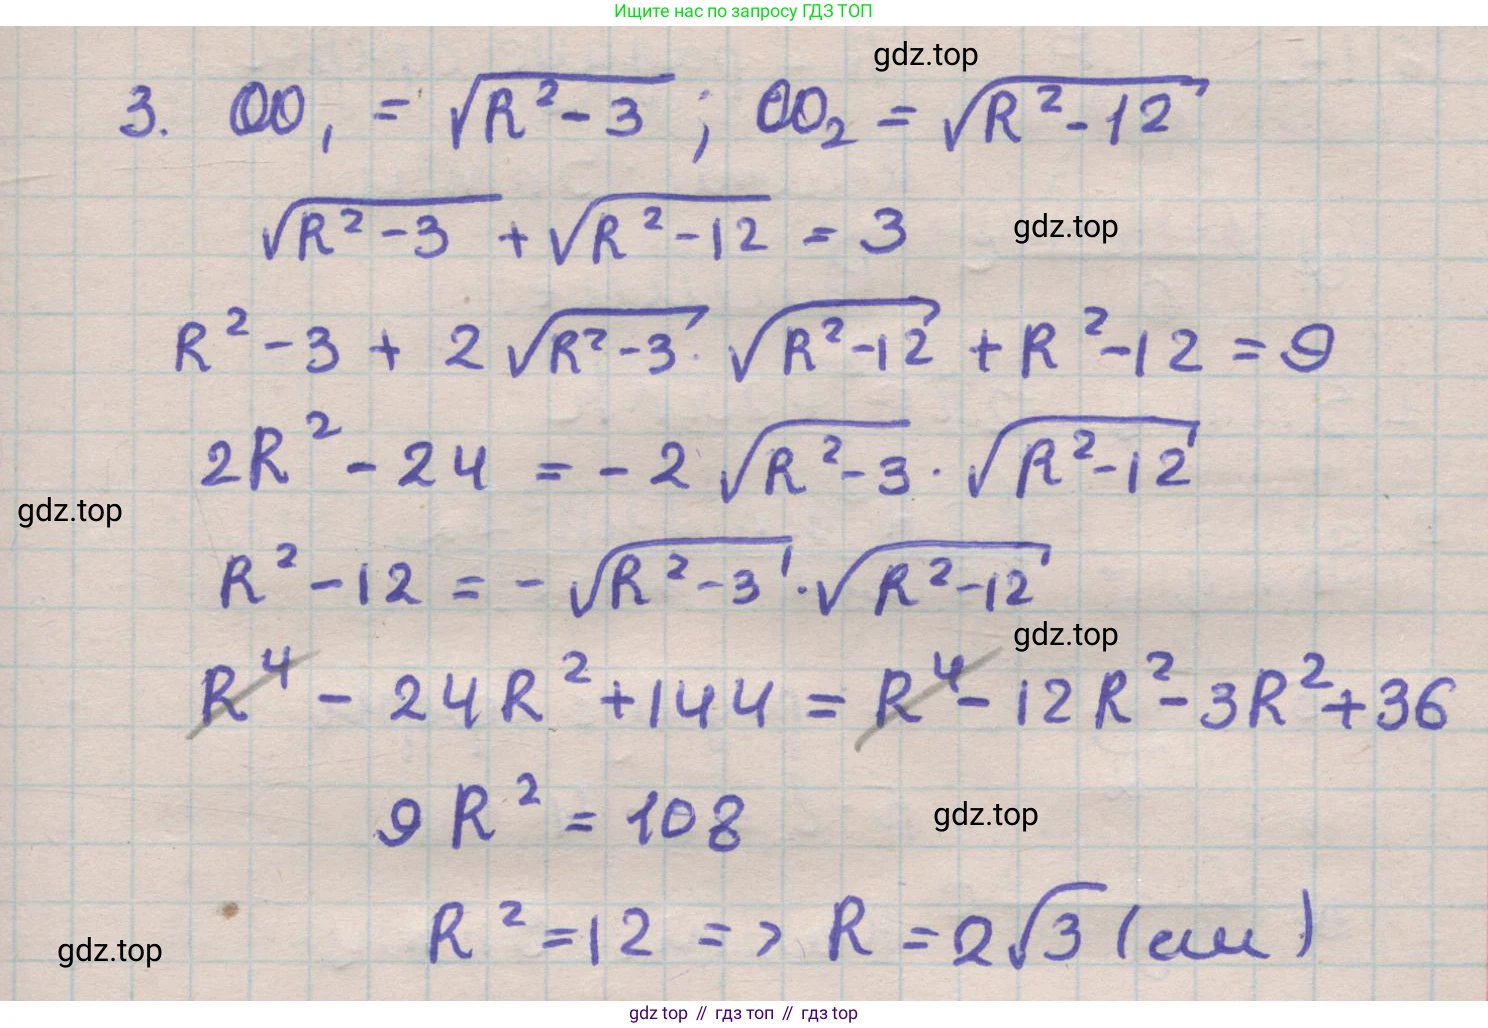 Ищите нас по запросу ГДЗ ТОП
gdz.top
3. OO₁ = √(R² - 3) ; OO₂ = √(R² - 12)
√(R² - 3) + √(R² - 12) = 3
gdz.top
R² - 3 + 2√(R² - 3) · √(R² - 12) + R² - 12 = 9
2R² - 24 = - 2√(R² - 3) · √(R² - 12)
gdz.top
R² - 12 = - √(R² - 3) · √(R² - 12)
gdz.top
R⁴ - 24R² + 144 = R⁴ - 12R² - 3R² + 36
9R² = 108
gdz.top
R² = 12 => R = 2√3 (см)
gdz.top
gdz top // гдз топ // гдз top